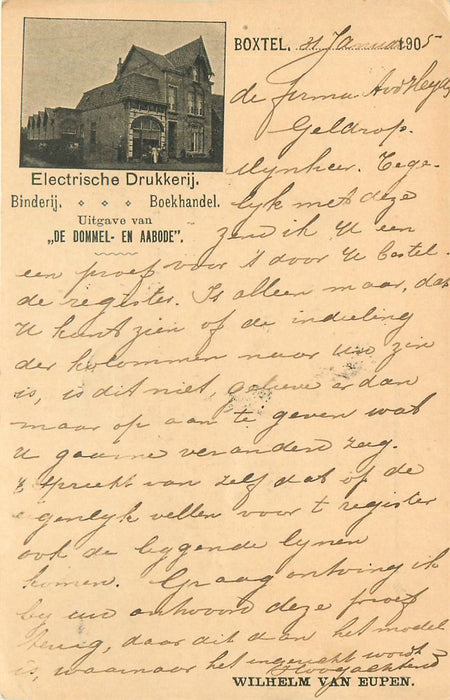 BOXTEL, 31 Januari 1905
de firma A v d Heyden
Geldrop.
Electrische Drukkerij.
Binderij. Boekhandel.
Uitgave van
„DE DOMMEL- EN AABODE".
Mijnheer. Tege-
lyk met deze
zend ik U een
een proef voor 't door U bestel-
de register. Is alleen maar, dat
U kunt zien of de indeeling
der kolommen naar uw zin
is, is dit niet, gelieve er dan
maar op aan te geven wat
U gaarne veranderd zag.
't Spreekt van zelf dat op de
eigenlyk vellen voor 't register
ook de liggende lynen
komen. Graag ontving ik
by uw antwoord deze proef
terug, daar dit dan het model
is, waarnaar het ingericht wordt
Hoogachtend
WILHELM VAN EUPEN.